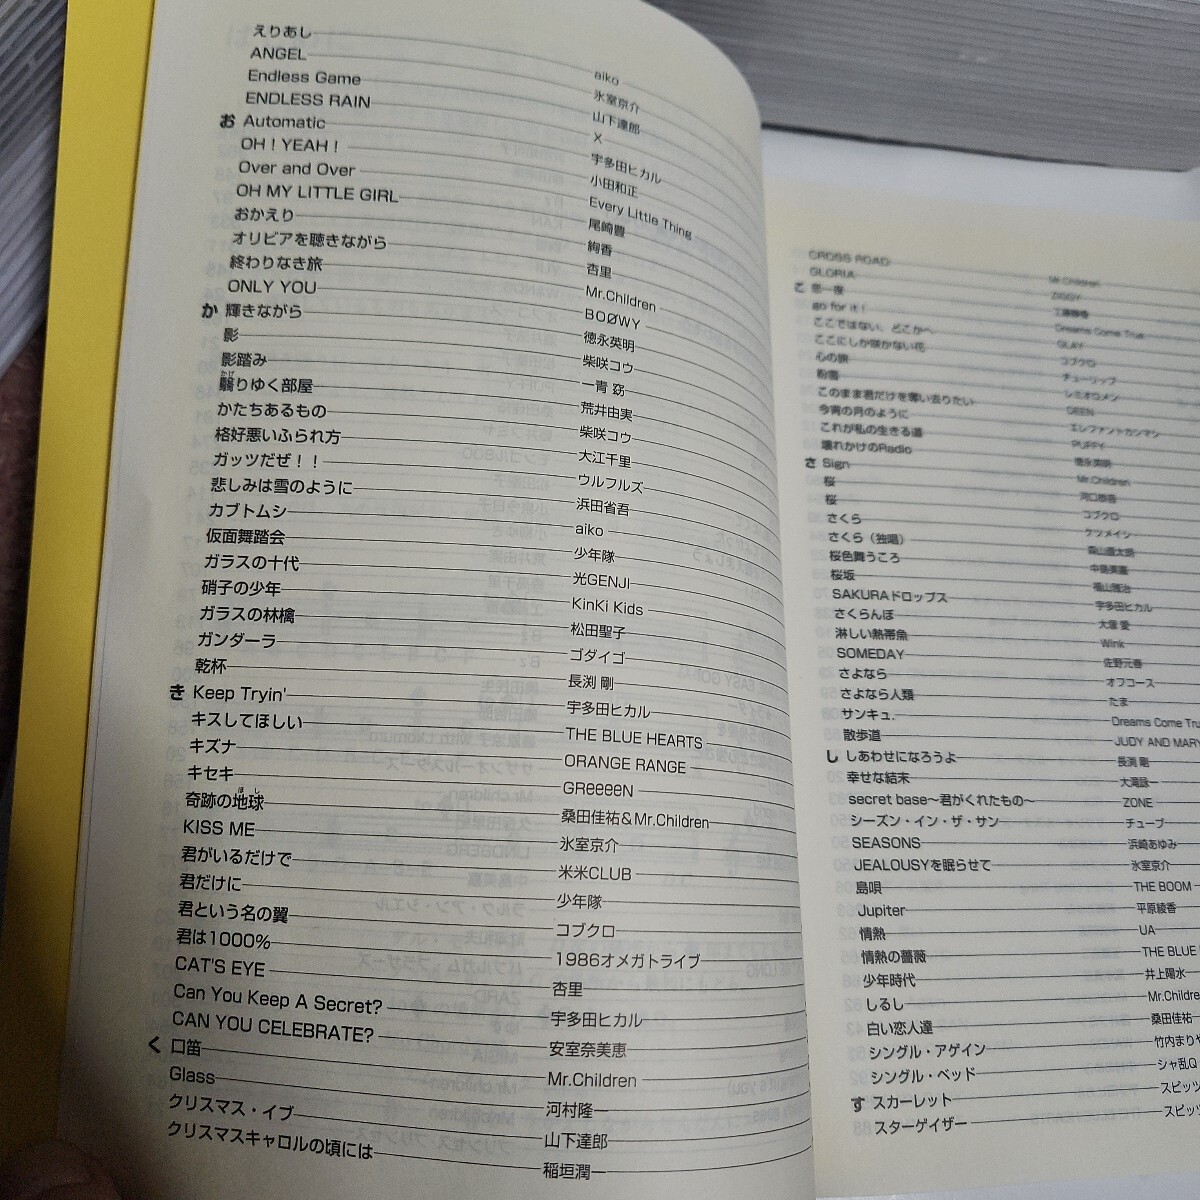 えりあし aiko
ANGEL 氷室京介
Endless Game 山下達郎
ENDLESS RAIN X
お Automatic 宇多田ヒカル
OH！YEAH！ 小田和正
Over and Over Every Little Thing
OH MY LITTLE GIRL 尾崎豊
おかえり 絢香
オリビアを聴きながら 杏里
終わりなき旅 Mr.Children
ONLY YOU BOØWY
か 輝きながら 徳永英明
影 柴咲コウ
影踏み 一青 窈
翳りゆく部屋 荒井由実
かたちあるもの 柴咲コウ
格好悪いふられ方 大江千里
ガッツだぜ！！ ウルフルズ
悲しみは雪のように 浜田省吾
カブトムシ aiko
仮面舞踏会 少年隊
ガラスの十代 光GENJI
硝子の少年 KinKi Kids
ガラスの林檎 松田聖子
ガンダーラ ゴダイゴ
乾杯 長渕 剛
き Keep Tryin' 宇多田ヒカル
キスしてほしい THE BLUE HEARTS
キズナ ORANGE RANGE
キセキ GReeeeN
奇跡の地球 桑田佳祐&Mr.Children
KISS ME 氷室京介
君がいるだけで 米米CLUB
君だけに 少年隊
君という名の翼 コブクロ
君は1000% 1986オメガトライブ
CAT'S EYE 杏里
Can You Keep A Secret? 宇多田ヒカル
CAN YOU CELEBRATE? 安室奈美恵
く 口笛 Mr.Children
Glass 河村隆一
クリスマス・イブ 山下達郎
クリスマスキャロルの頃には 稲垣潤一
CROSS ROAD Mr.Children
GLORIA ZIGGY
こ 恋一夜 工藤静香
go for it！ Dreams Come True
ここではない、どこかへ GLAY
ここにしか咲かない花 コブクロ
心の旅 チューリップ
粉雪 レミオロメン
このまま君だけを奪い去りたい DEEN
今宵の月のように エレファントカシマシ
これが私の生きる道 PUFFY
壊れかけのRadio 徳永英明
さ Sign Mr.Children
桜 河口恭吾
桜 コブクロ
さくら ケツメイシ
さくら（独唱） 森山直太朗
桜色舞うころ 中島美嘉
桜坂 福山雅治
SAKURAドロップス 宇多田ヒカル
さくらんぼ 大塚 愛
淋しい熱帯魚 Wink
SOMEDAY 佐野元春
さよなら オフコース
さよなら人類 たま
サンキュ. Dreams Come True
散歩道 JUDY AND MARY
し しあわせになろうよ 長渕 剛
幸せな結末 大滝詠一
secret base〜君がくれたもの〜 ZONE
シーズン・イン・ザ・サン チューブ
SEASONS 浜崎あゆみ
JEALOUSYを眠らせて 氷室京介
島唄 THE BOOM
Jupiter 平原綾香
情熱 UA
情熱の薔薇 THE BLUE
少年時代 井上陽水
しるし Mr.Childre
白い恋人達 桑田佳祐
シングル・アゲイン 竹内まりや
シングル・ベッド シャ乱Q
す スカーレット スピッツ
スターゲイザー スピッツ